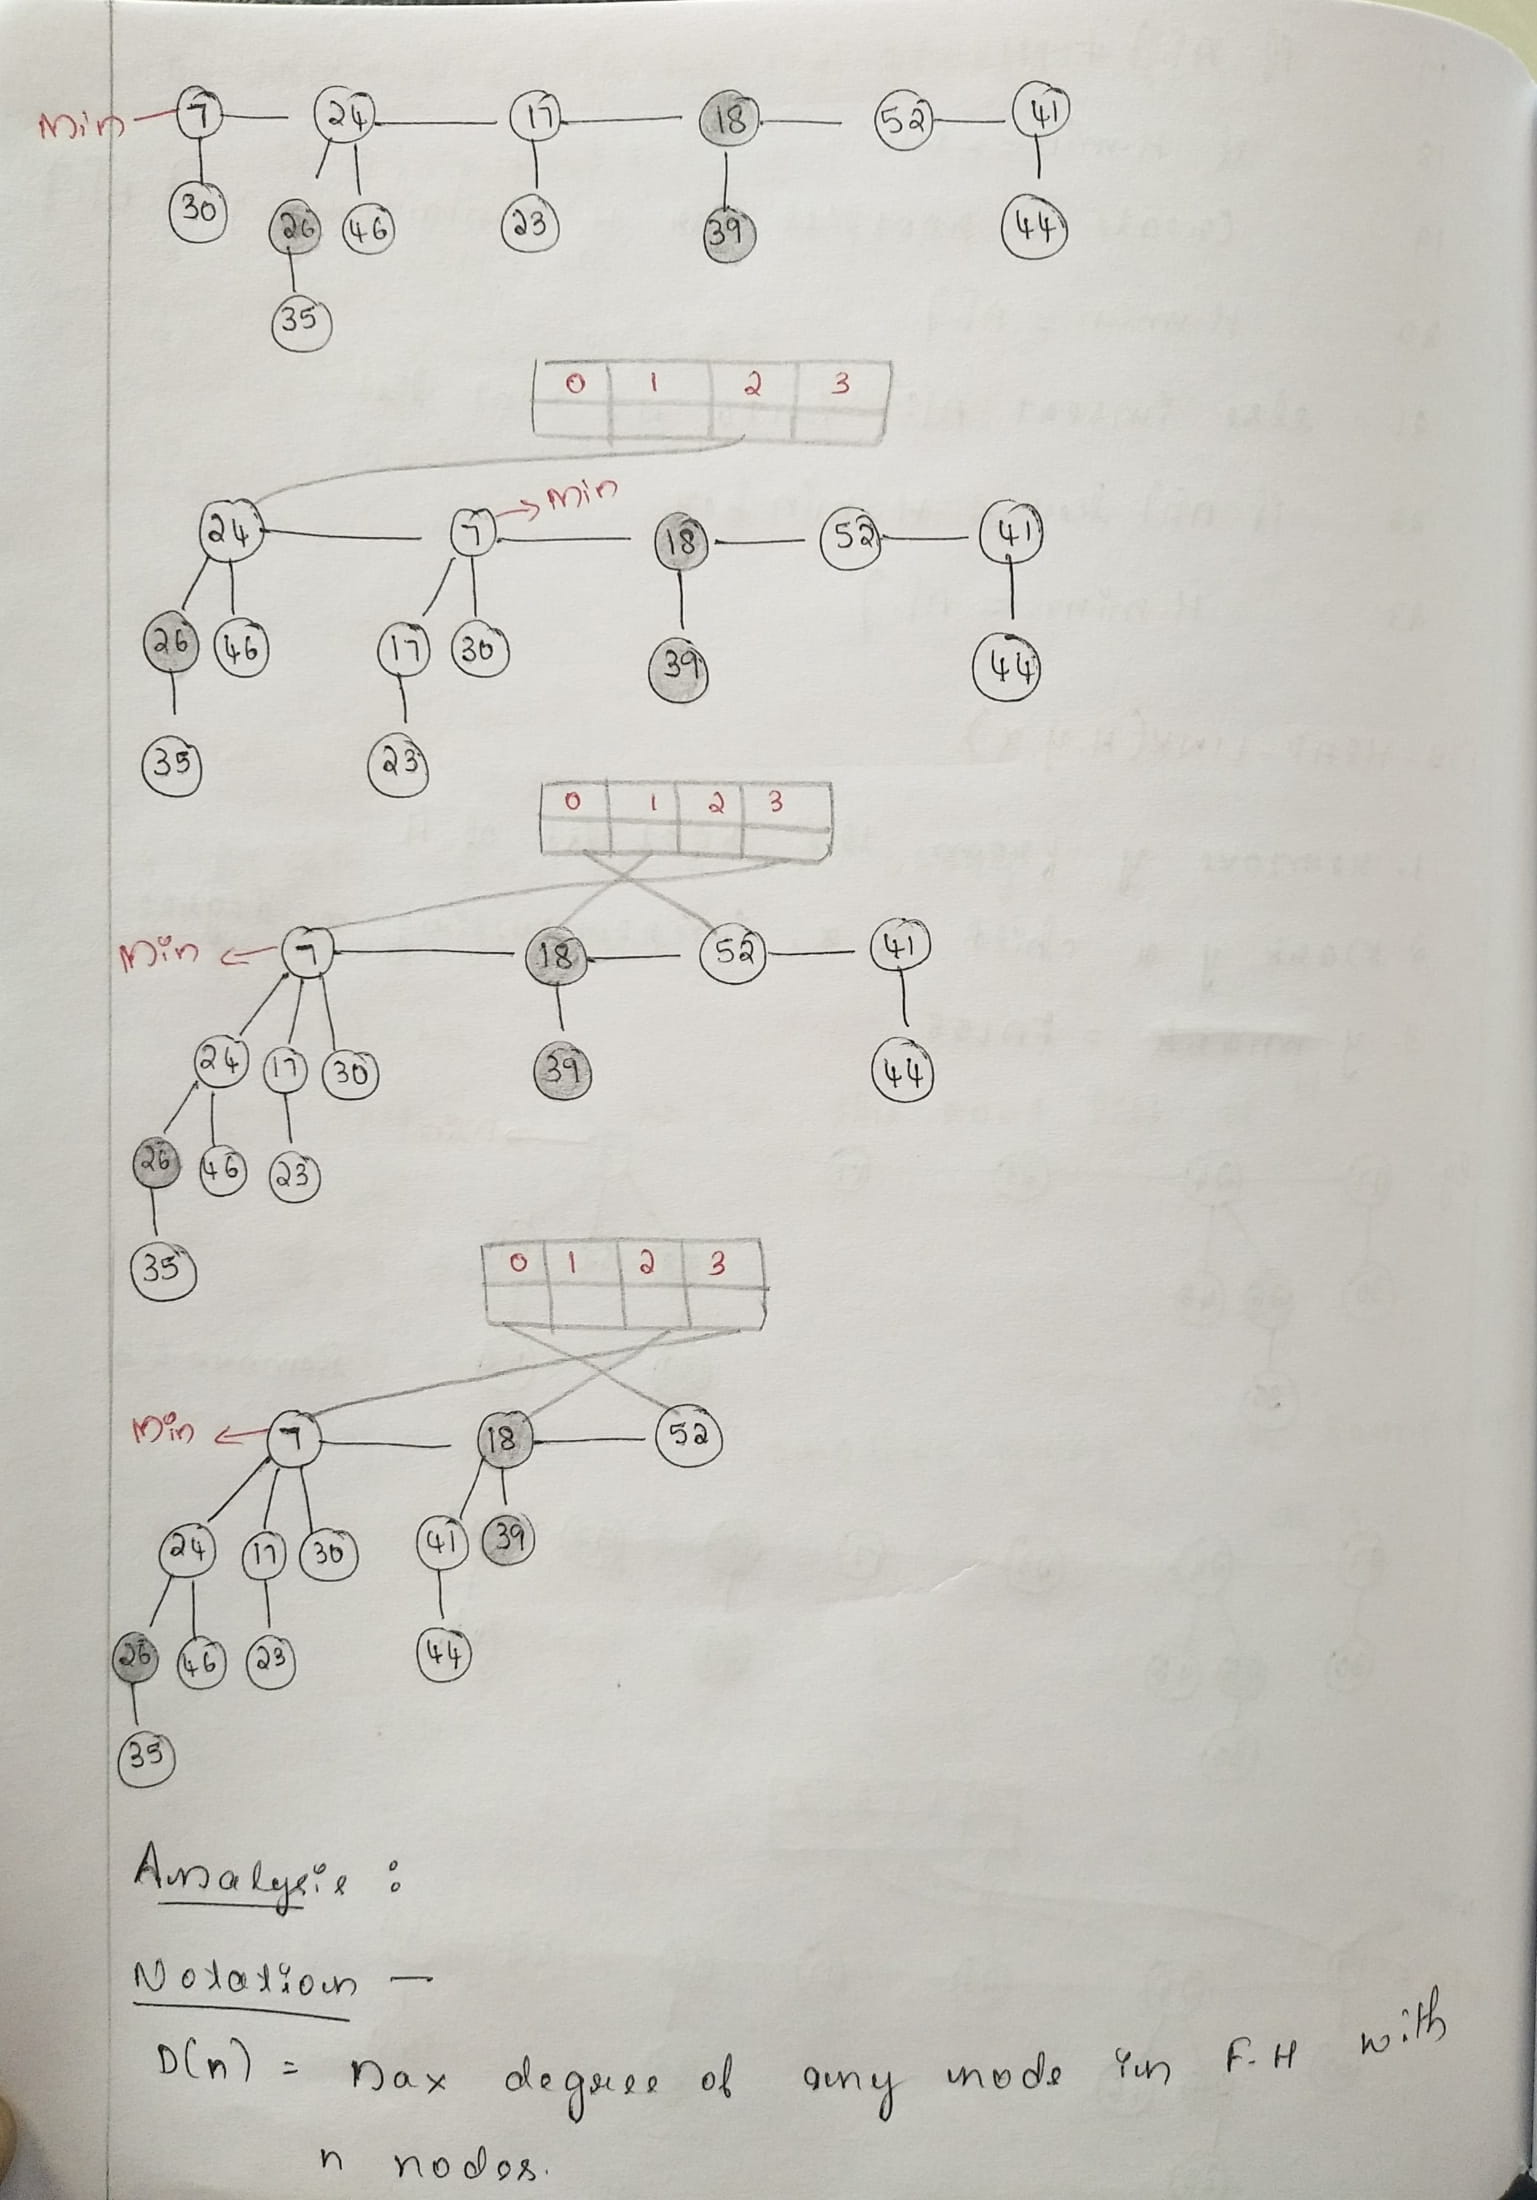 Min 7 24 17 18 52 41
30 26 46 23 39 44
35
0 1 2 3
24 7 Min 18 52 41
26 46 17 30 39 44
35 23
0 1 2 3
Min 7 18 52 41
24 17 30 39 44
26 46 23
35
0 1 2 3
Min 7 18 52
24 17 30 41 39
26 46 23 44
35
Analysis :
Notation —
D(n) = Max degree of any node in F.H with
n nodes.